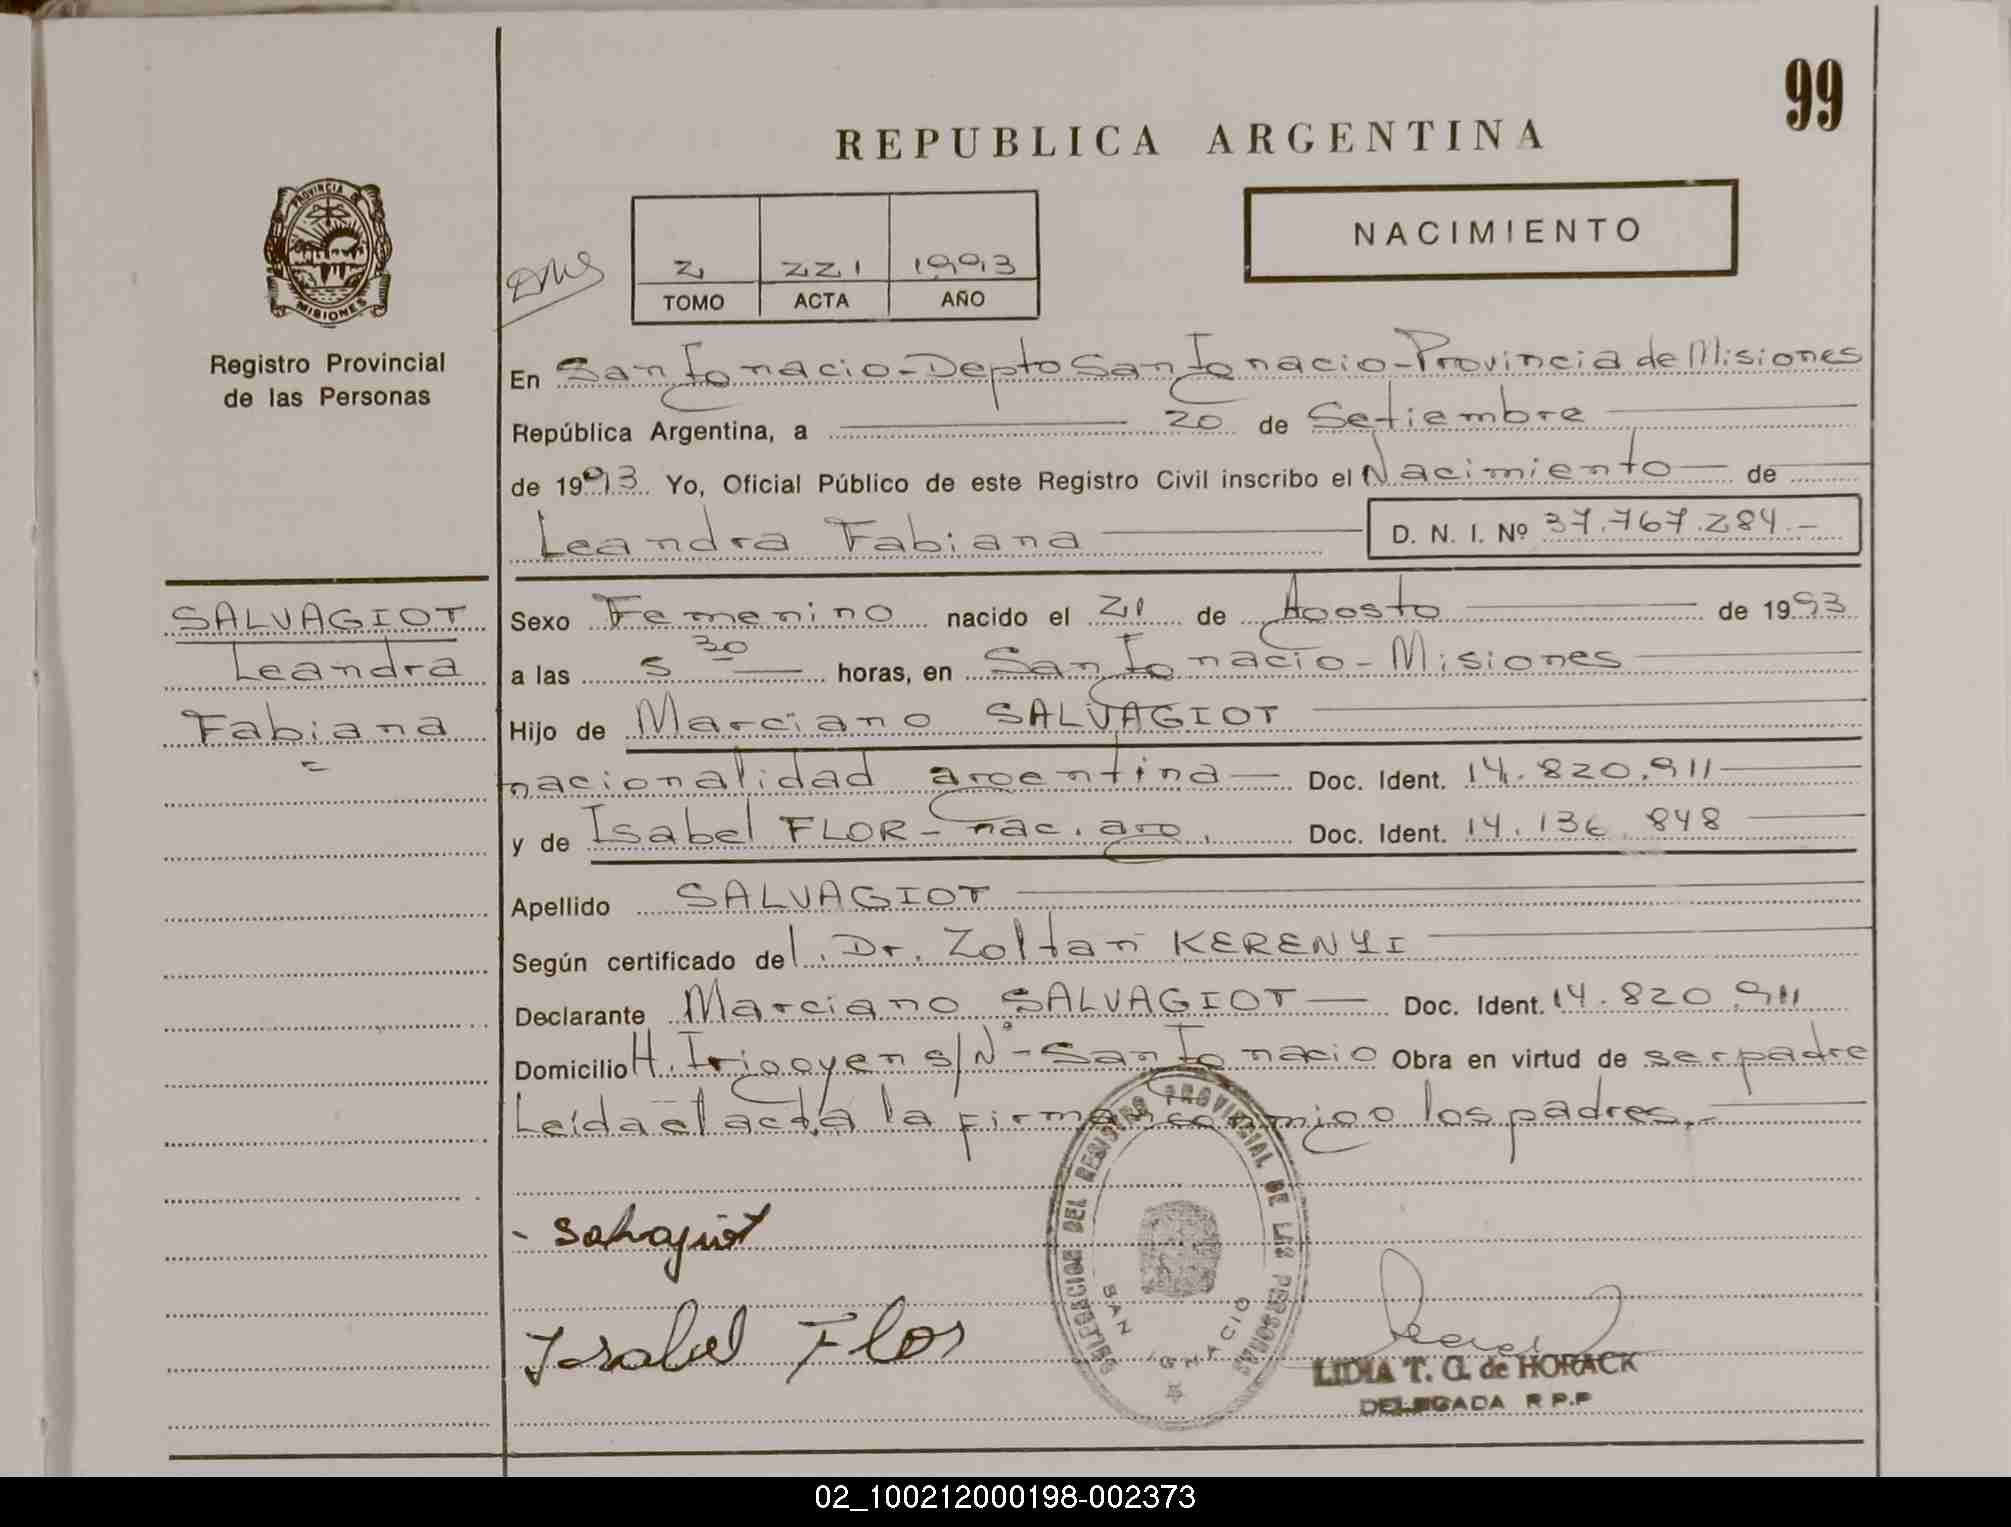 99
REPUBLICA ARGENTINA
PROVINCIA DE
MISIONES
Registro Provincial
de las Personas
2 221 1993
TOMO ACTA AÑO
NACIMIENTO
En San Ignacio-Depto San Ignacio-Provincia de Misiones
República Argentina, a 20 de Setiembre
de 1993 Yo, Oficial Público de este Registro Civil inscribo el Nacimiento de
Leandra Fabiana D. N. I. Nº 37.767.284.-
SALVAGIOT
Leandra
Fabiana
Sexo Femenino nacido el 21 de Agosto de 1993
a las 5 30 horas, en San Ignacio-Misiones
Hijo de Marciano SALVAGIOT
nacionalidad argentina Doc. Ident. 14.820.911
y de Isabel FLOR-nac. arg. Doc. Ident. 14.136.848
Apellido SALVAGIOT
Según certificado del. Dr. Zoltan KERENYI
Declarante Marciano SALVAGIOT Doc. Ident. 14.820.911
Domicilio H. Irigoyen s/Nº-San Ignacio Obra en virtud de ser padre
Leída el acta la firman conmigo los padres.-
Salvagiot
Isabel Flor
DELEGACION DEL REGISTRO PROVINCIAL DE LAS PERSONAS
SAN IGNACIO
LIDIA T. G. de HORACK
DELEGADA R P.P
02_100212000198-002373